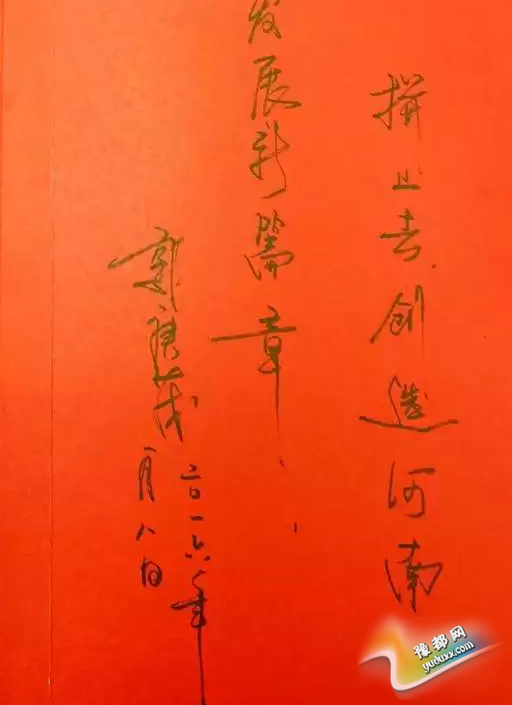 拼上去创造河南
发展新篇章
郭庚茂
二〇一六年
一月八日
豫都网
yuduxx.com